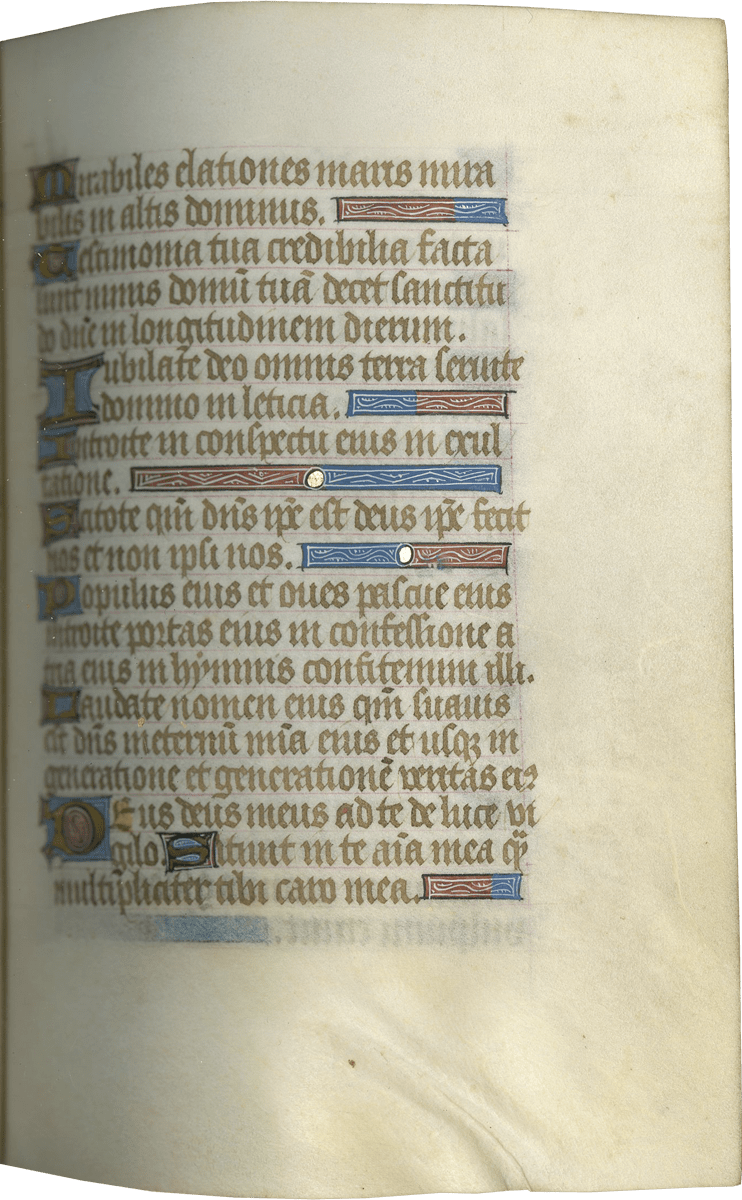 Mirabiles elationes maris mira
bilis in altis dominus.
Testimonia tua credibilia facta
sunt nimis domū tuā decet sanctitu
do dn̄e in longitudinem dierum.
Iubilate deo omnis terra seruite
domino in leticia.
Introite in conspectu eius in exul
tatione.
Scitote qm̄ dn̄s ip̄e est deus ip̄e fecit
nos et non ipsi nos.
Populus eius et oues pascue eius
introite portas eius in confessione a
tria eius in hymnis confitemini illi.
Laudate nomen eius qm̄ suauis
est dn̄s ineternū mīa eius et usqꝫ in
generatione et generationē veritas eiꝰ
Deus deus meus ad te de luce vi
gilo. Sitiuit in te aīa mea qͣ̄
multipliciter tibi caro mea.